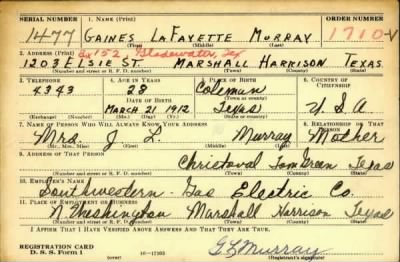 SERIAL NUMBER 1. NAME (Print) ORDER NUMBER
1477 GAINES LAFAYETTE MURRAY 1710-V
(First) (Middle) (Last)
2. ADDRESS (Print) Bx 152, Gladewater, Tex
1203 ELSIE ST. MARSHALL HARRISON TEXAS
(Number and street or R. F. D. number) (Town) (County) (State)
3. TELEPHONE 4. AGE IN YEARS 5. PLACE OF BIRTH 6. COUNTRY OF CITIZENSHIP
4343 28 Coleman
DATE OF BIRTH (Town or county)
MARCH 21 1912 Texas U S A
(Mo.) (Day) (Yr.) (State or country)
7. NAME OF PERSON WHO WILL ALWAYS KNOW YOUR ADDRESS 8. RELATIONSHIP OF THAT PERSON
Mrs. J L Murray Mother
(Mr., Mrs., Miss) (First) (Middle) (Last)
9. ADDRESS OF THAT PERSON
Christoval Tom Green Texas
(Number and street or R. F. D. number) (Town) (County) (State)
10. EMPLOYER'S NAME
Southwestern Gas Electric Co.
11. PLACE OF EMPLOYMENT OR BUSINESS
N. Washington Marshall Harrison Texas
(Number and street or R. F. D. number) (Town) (County) (State)
I AFFIRM THAT I HAVE VERIFIED ABOVE ANSWERS AND THAT THEY ARE TRUE.
REGISTRATION CARD
D. S. S. Form 1 (over) G L Murray
(Registrant's signature)